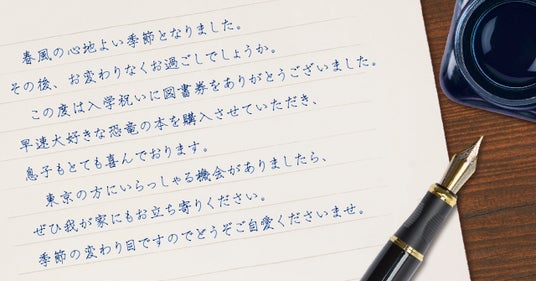 春風の心地よい季節となりました。
その後、お変わりなくお過ごしでしょうか。
この度は入学祝いに図書券をありがとうございました。
早速大好きな恐竜の本を購入させていただき、
息子もとても喜んでおります。
東京の方にいらっしゃる機会がありましたら、
ぜひ我が家にもお立ち寄りください。
季節の変わり目ですのでどうぞご自愛くださいませ。